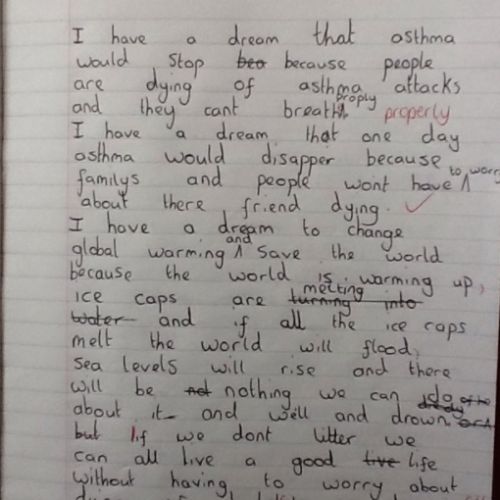 I have a dream that asthma
would stop beo because people
are dying of asthma attacks
and they cant breath proply properly
I have a dream that one day
asthma would disapper because
familys and people wont have to worry
about there friend dying.
I have a dream to change
global warming and save the world
because the world is warming up,
ice caps are turning into melting
water and if all the ice caps
melt the world will flood,
sea levels will rise and there
will be not nothing we can do
about it and we'll and drown
but if we dont litter we
can all live a good live life
without having to worry about